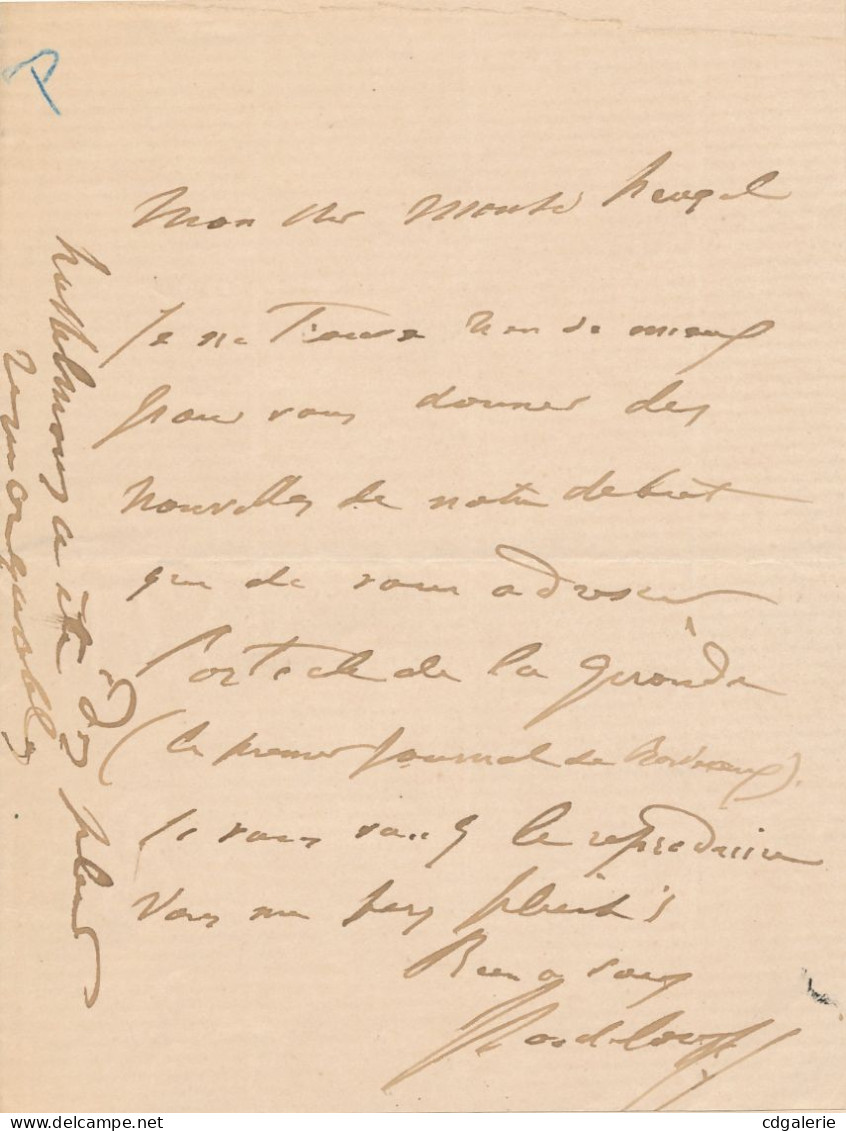 Mon cher Monsr Heugel
Je ne trouve rien de mieux
pour vous donner des
nouvelles de notre debut
que de vous adresser
l'article de la Gironde
(le premier journal de Bordeaux).
Si vous voulez le reproduire
Vous me ferez plaisir
Bien a vous
Pasdeloup
a été des plus
remarquables
P
cdgalerie